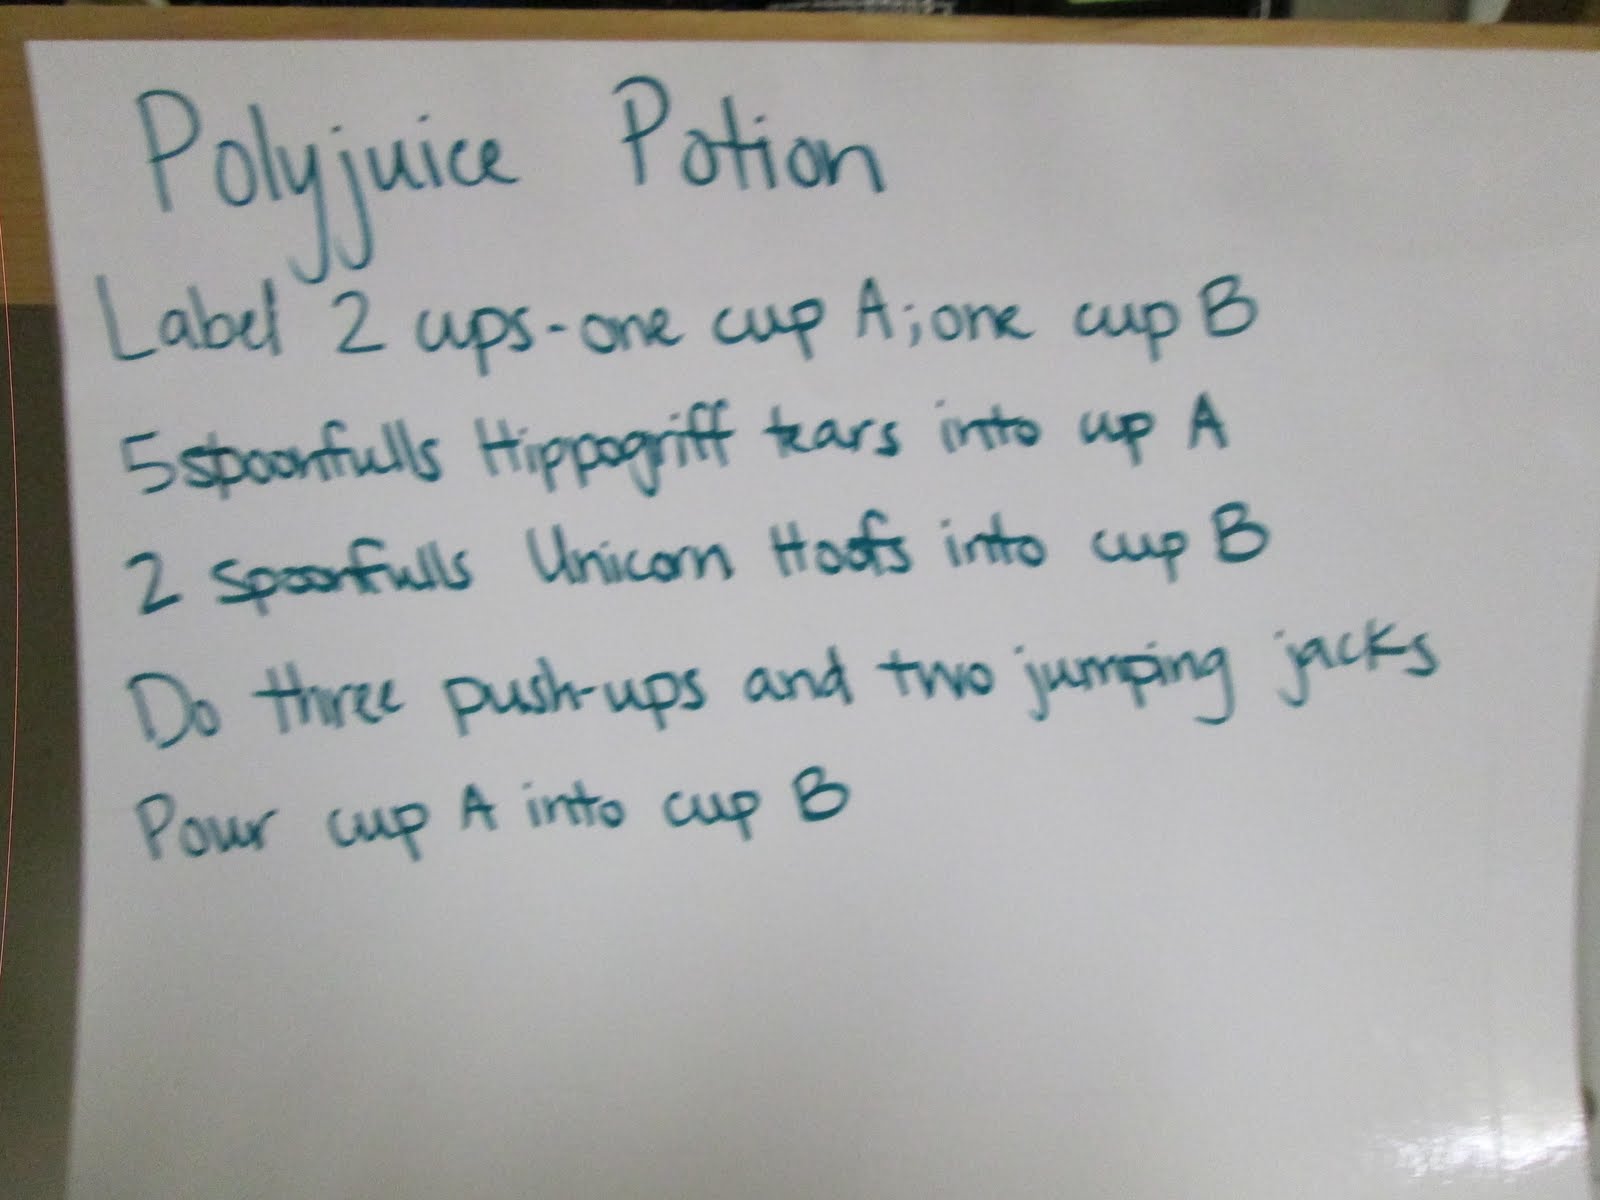 Polyjuice Potion
Label 2 cups-one cup A; one cup B
5 spoonfulls Hippogriff tears into cup A
2 spoonfulls Unicorn Hoofs into cup B
Do three push-ups and two jumping jacks
Pour cup A into cup B